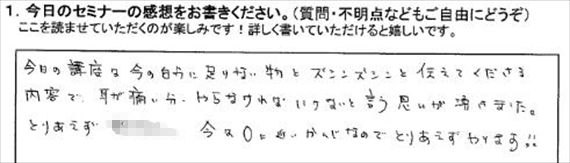 1. 今日のセミナーの感想をお書きください。(質問・不明点などもご自由にどうぞ)
ここを読ませていただくのが楽しみです!詳しく書いていただけると嬉しいです。
今日の講座は今の自分に足りない物とズシンズシンと伝えてくださる
内容で、耳が痛い分、やらなければいけないと言う思いが湧きました。
とりあえず 今は0に近いかんじなのでとりあえずやります!!